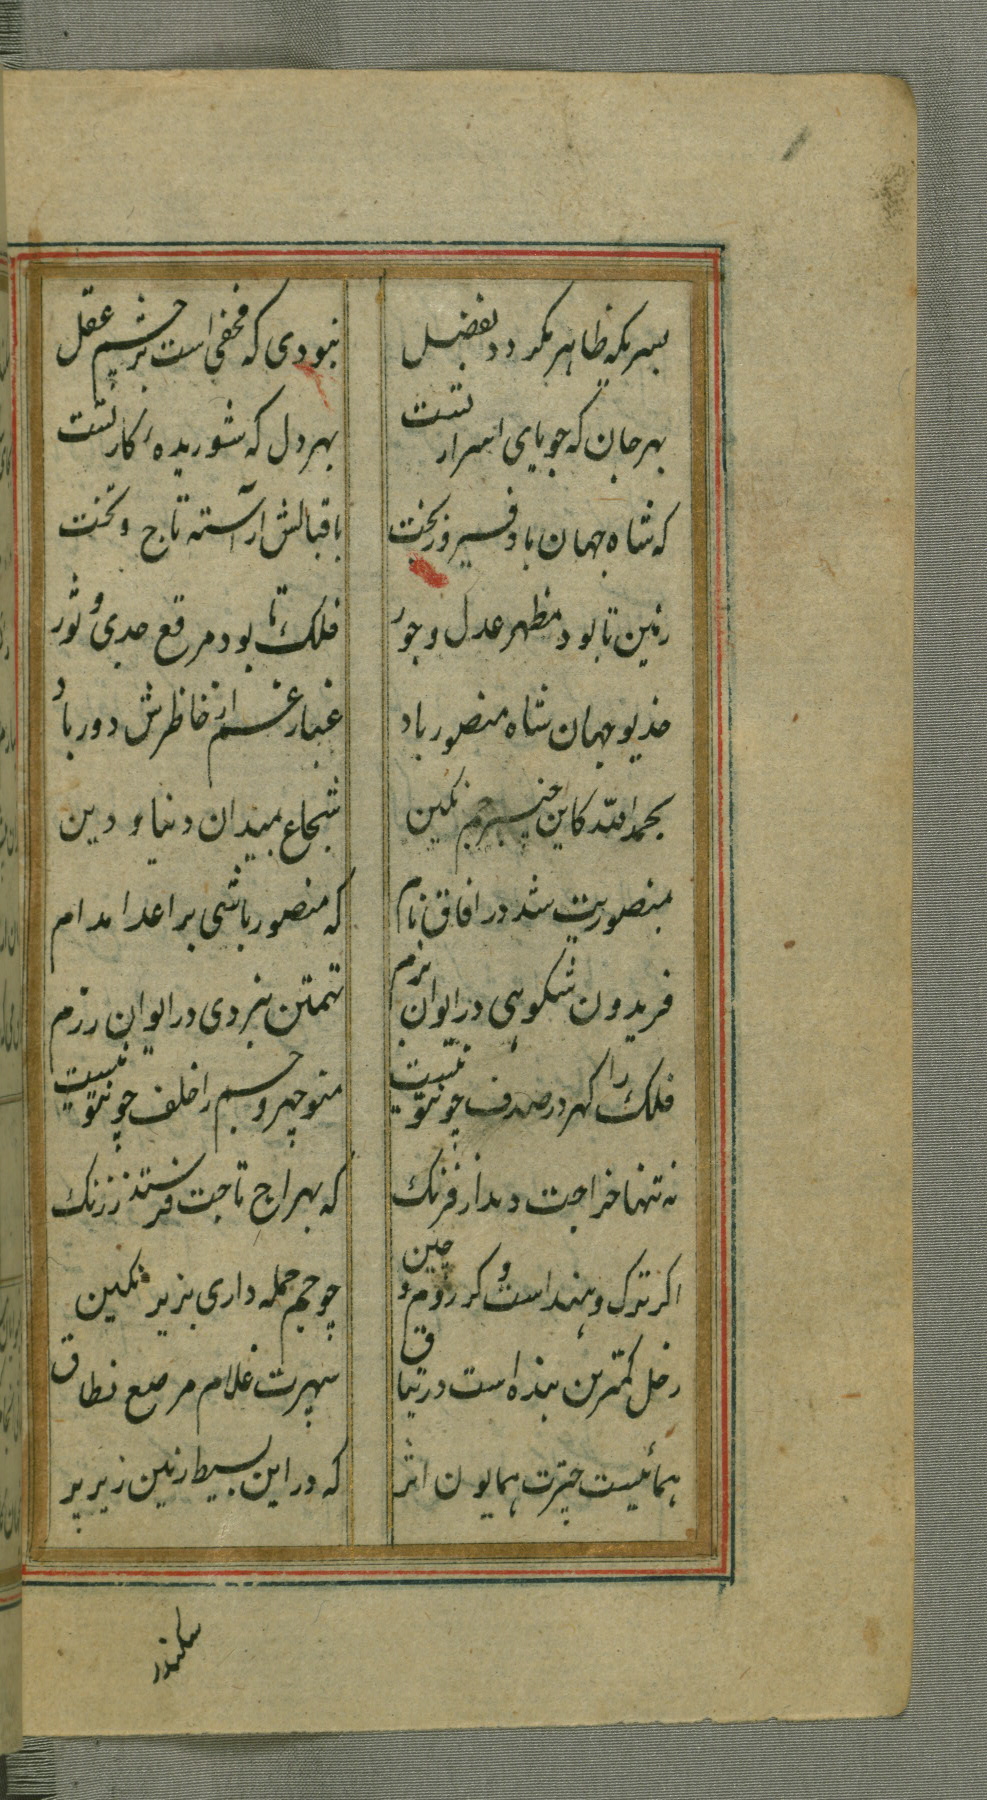 بسریکه ظاهر نکردد بفضل نبودی که مخفی است بر چشم عقل
بهر جان که جویای اسرار تست بهر دل که شوریدهٔ کار تست
که شاه جهان باد فیروز بخت باقبالش آراسته تاج و تخت
زمین تا بود مظهر عدل و جور فلک تا بود مرقع جدی و ثور
خدیو جهان شاه منصور باد غبار غم از خاطرش دور باد
بحمدالله کاین خسرو جم نکین شجاع بمیدان دنیا و دین
بمنصوریت شد در افاق نام که منصور باشی بر اعدا مدام
فریدون شکوهی در ایوان بزم تهمتن نبردی در ایوان رزم
فلک را کهر در صدف چونتو نیست منوچهر و جم را خلف چونتو نیست
نه تنها خراجت دهد از فرنک که بهراج تاجت فرستد ز زنک
اکر ترک و هند است و کر روم و چین چو جم جمله داری بزیر نکین
زحل کمترین بنده است در تیاق سپهرت غلام مرصع نطاق
همائیست چترت همایون اثر که در این بسیط زمین زیر پر
سکندر